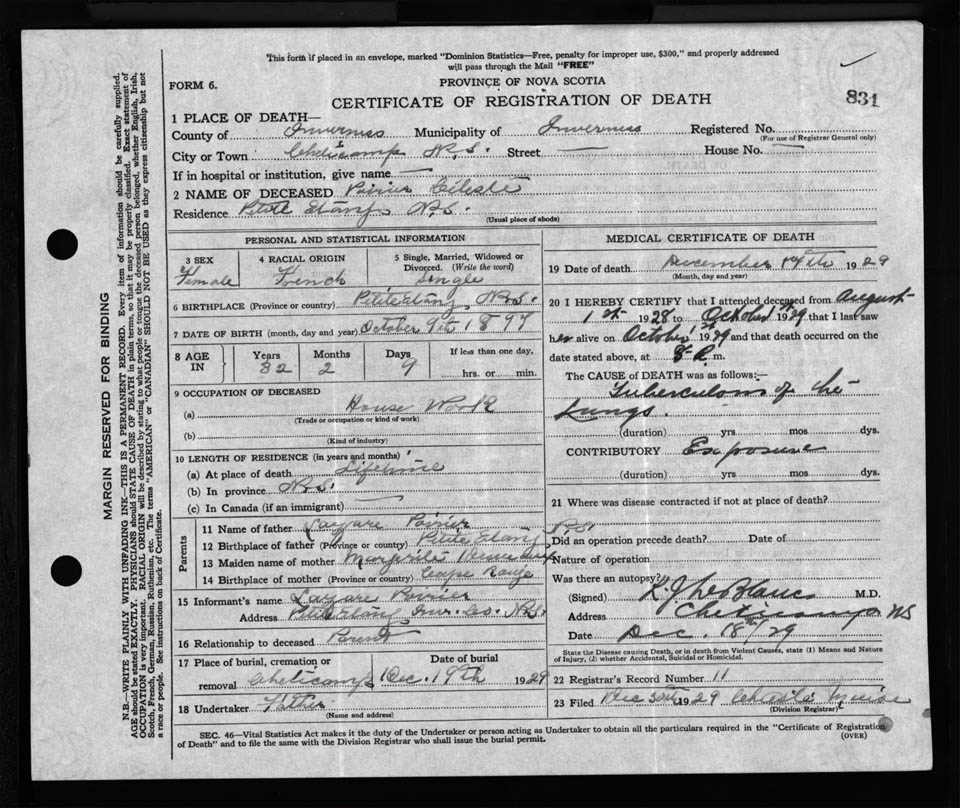 This form if placed in an envelope, marked "Dominion Statistics—Free, penalty for improper use, $300," and properly addressed
will pass through the Mail "FREE"
FORM 6.
PROVINCE OF NOVA SCOTIA
831
CERTIFICATE OF REGISTRATION OF DEATH
1 PLACE OF DEATH—
County of Inverness Municipality of Inverness Registered No.
(For use of Registrar General only)
City or Town Cheticamp N.S. Street — House No. —
If in hospital or institution, give name —
2 NAME OF DECEASED Poirier Céleste
Residence Petite Etang N.S.
(Usual place of abode)
PERSONAL AND STATISTICAL INFORMATION
3 SEX 4 RACIAL ORIGIN 5 Single, Married, Widowed or
Divorced. (Write the word)
Female French Single
6 BIRTHPLACE (Province or country) Petite Etang, N.S.
7 DATE OF BIRTH (month, day and year) October 9th 1897
8 AGE IN Years Months Days If less than one day,
32 2 9 hrs. or min.
9 OCCUPATION OF DECEASED
(a) House Work
(Trade or occupation or kind of work)
(b)
(Kind of industry)
10 LENGTH OF RESIDENCE (in years and months)
(a) At place of death Lifetime
(b) In province N.S.
(c) In Canada (if an immigrant) —
Parents
11 Name of father Lazare Poirier
12 Birthplace of father (Province or country) Petite Etang
N.S.
13 Maiden name of mother Marguerite
14 Birthplace of mother (Province or country) Rouge
15 Informant's name Lazare Poirier
Address Petit Etang Inv. Co. N.S.
16 Relationship to deceased Parent
17 Place of burial, cremation or Date of burial
removal Cheticamp Dec. 19th 1929
18 Undertaker Father
(Name and address)
MEDICAL CERTIFICATE OF DEATH
19 Date of death December 1929
(Month, day and year)
20 I HEREBY CERTIFY that I attended deceased from August
1st 1928 to October 1st 1929 that I last saw
her alive on October 1st 1929 and that death occurred on the
date stated above, at m.
The CAUSE of DEATH was as follows:—
Tuberculosis of the
Lungs.
(duration) yrs mos dys.
CONTRIBUTORY Exposure
(duration) yrs mos dys.
21 Where was disease contracted if not at place of death?
Did an operation precede death? Date of
Nature of operation
Was there an autopsy?
(Signed) L. J. LeBlanc M.D.
Address Cheticamp NS
Date Dec. 18th/29
State the Disease causing Death, or in death from Violent Causes, state (1) Means and Nature
of Injury, (2) whether Accidental, Suicidal or Homicidal.
22 Registrar's Record Number 11
23 Filed Dec 30th 1929 Charlie
(Division Registrar)
SEC. 46—Vital Statistics Act makes it the duty of the Undertaker or person acting as Undertaker to obtain all the particulars required in the "Certificate of Registration
of Death" and to file the same with the Division Registrar who shall issue the burial permit.
(OVER)
MARGIN RESERVED FOR BINDING
N.B.—WRITE PLAINLY WITH UNFADING INK—THIS IS A PERMANENT RECORD. Every item of information should be carefully supplied.
AGE should be stated EXACTLY. PHYSICIANS should STATE CAUSE OF DEATH in plain terms, so that it may be properly classified. Exact statement of
OCCUPATION is very important. RACIAL ORIGIN will be described by stating to what people or tongue the deceased person belonged, whether English, Irish,
Scotch, French, German, Russian, Ruthenian, etc. The terms "AMERICAN" or "CANADIAN" SHOULD NOT BE USED as they express citizenship but not
a race or people. See instructions on back of Certificate.